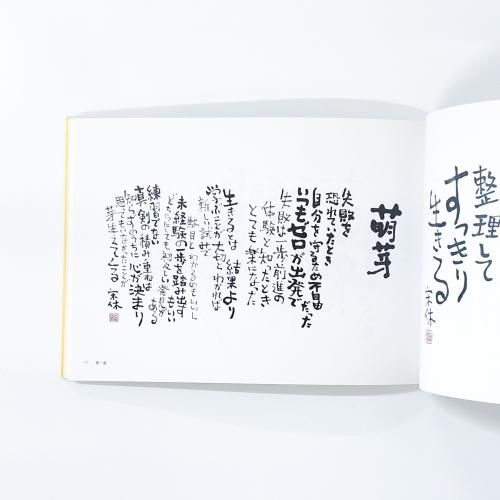 萌芽
失敗を
恐れていたとき
自分を守るため不自由だった
いつもゼロが出発で
失敗は一歩前進の
体験と知ったとき
とても楽になった
生きるとは 結果より
学ぶことが大切とわかれば
新しい試せて
駄目とわかるのもいいし
未経験の一歩を踏み出すもいい
どちらにしても初々しい発見がある
練習でない
真剣の積み重ねは
知らずのうちに心が決まり
思ってもいなかったことが
芽生えてくる
宗休
整理して
すっきり
生きる
宗休